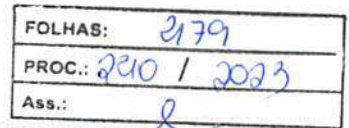 FOLHAS: 2179
PROC.: 240 / 2023
Ass.: